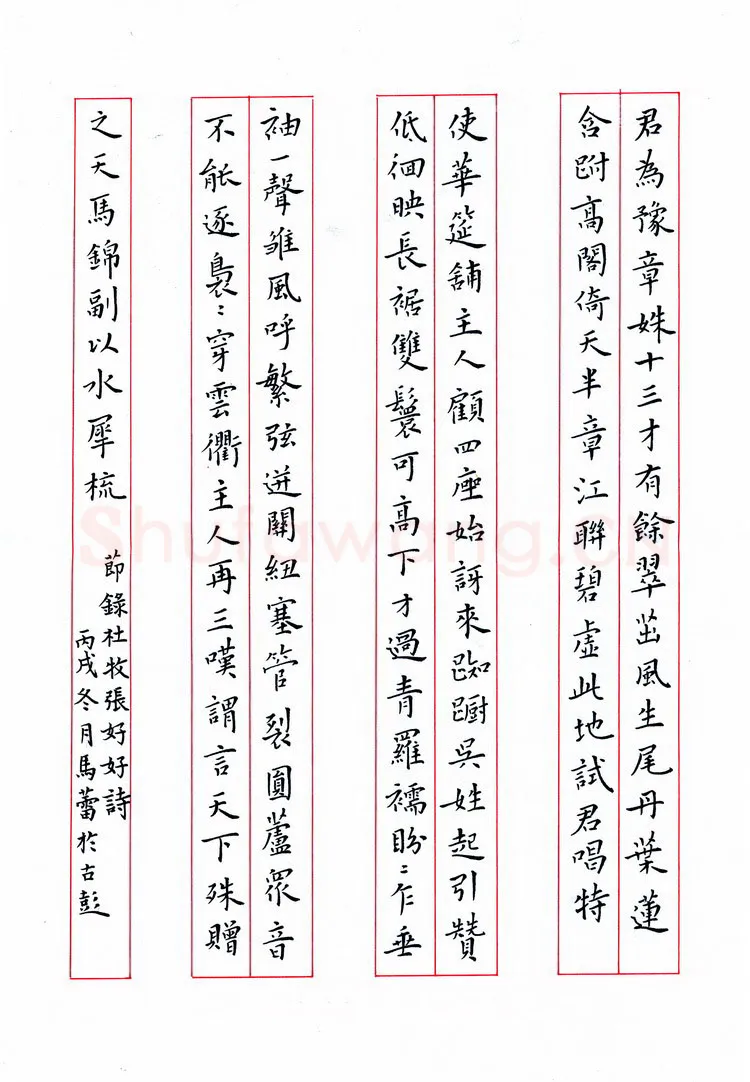 君為豫章姝十三才有餘翠茁風生尾丹葉蓮
含跗高閣倚天半章江聯碧虛此地試君唱特
使華筵舖主人顧四座始訝來踟躕吳姓起引贊
低徊映長裾雙鬟可高下才過青羅襦盼〻乍垂
袖一聲雏風呼繁弦迸關紐塞管裂圓蘆眾音
不能逐裊〻穿雲衢主人再三嘆謂言天下殊贈
之天馬錦副以水犀梳
節錄社牧張好好詩
丙戌冬月馬蕾於古彭
Shufawang.cn